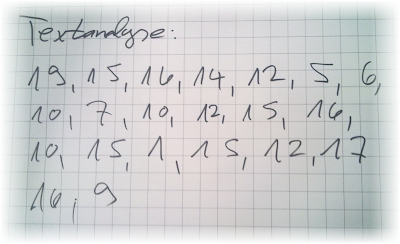 Textanalyse:
19, 15, 16, 14, 12, 5, 6,
10, 7, 10, 12, 15, 16,
10, 15, 1, 15, 12, 17
16, 9